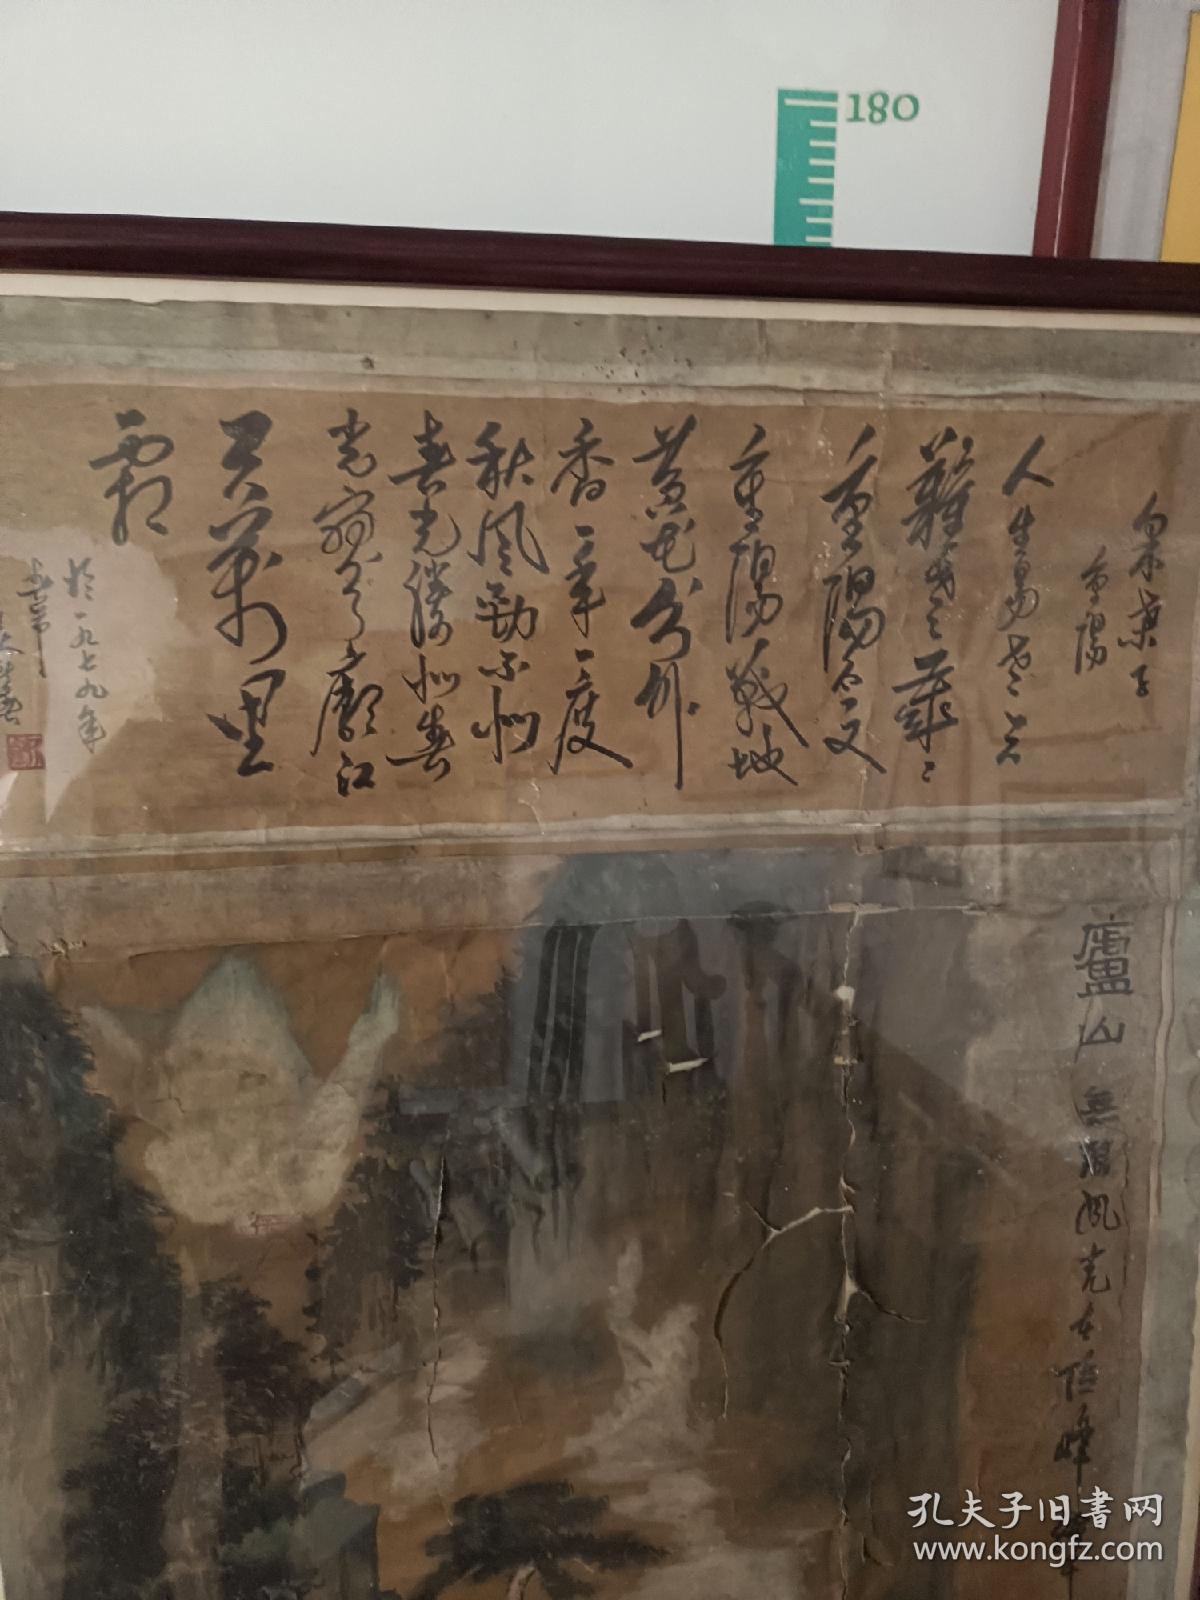 180
采桑子
重阳
人生易老天
難老歲〻
重陽今又
重陽戰地
黄花分外
香一年一度
秋風勁不似
春光勝似春
光寥廓江
天萬里
霜
於一九七九年
廬山無限風光在險峰
孔夫子旧书网
www.kongfz.com